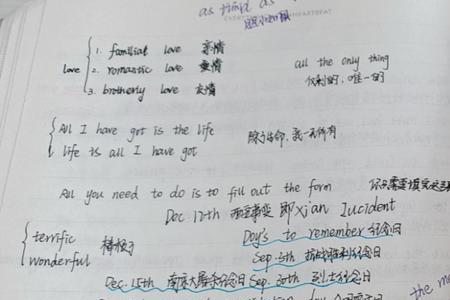 as timid as
胆小如鼠
1. familiar love 亲情
love 2. romantic love 爱情
3. brotherly love 友情
all the only thing
仅剩的, 唯一的
All I have got is the life
life is all I have got
除了生命, 我一无所有
All you need to do is to fill out the form 你只需要填完这
Dec 12th 西安事变 即Xian Iucident
terrific 棒极了
wonderful
Day's to remember 纪念日
Sep. 3th 抗战胜利纪念日
Dec. 13th 南京大屠杀纪念日 Sep. 30th 烈士纪念日
the mo